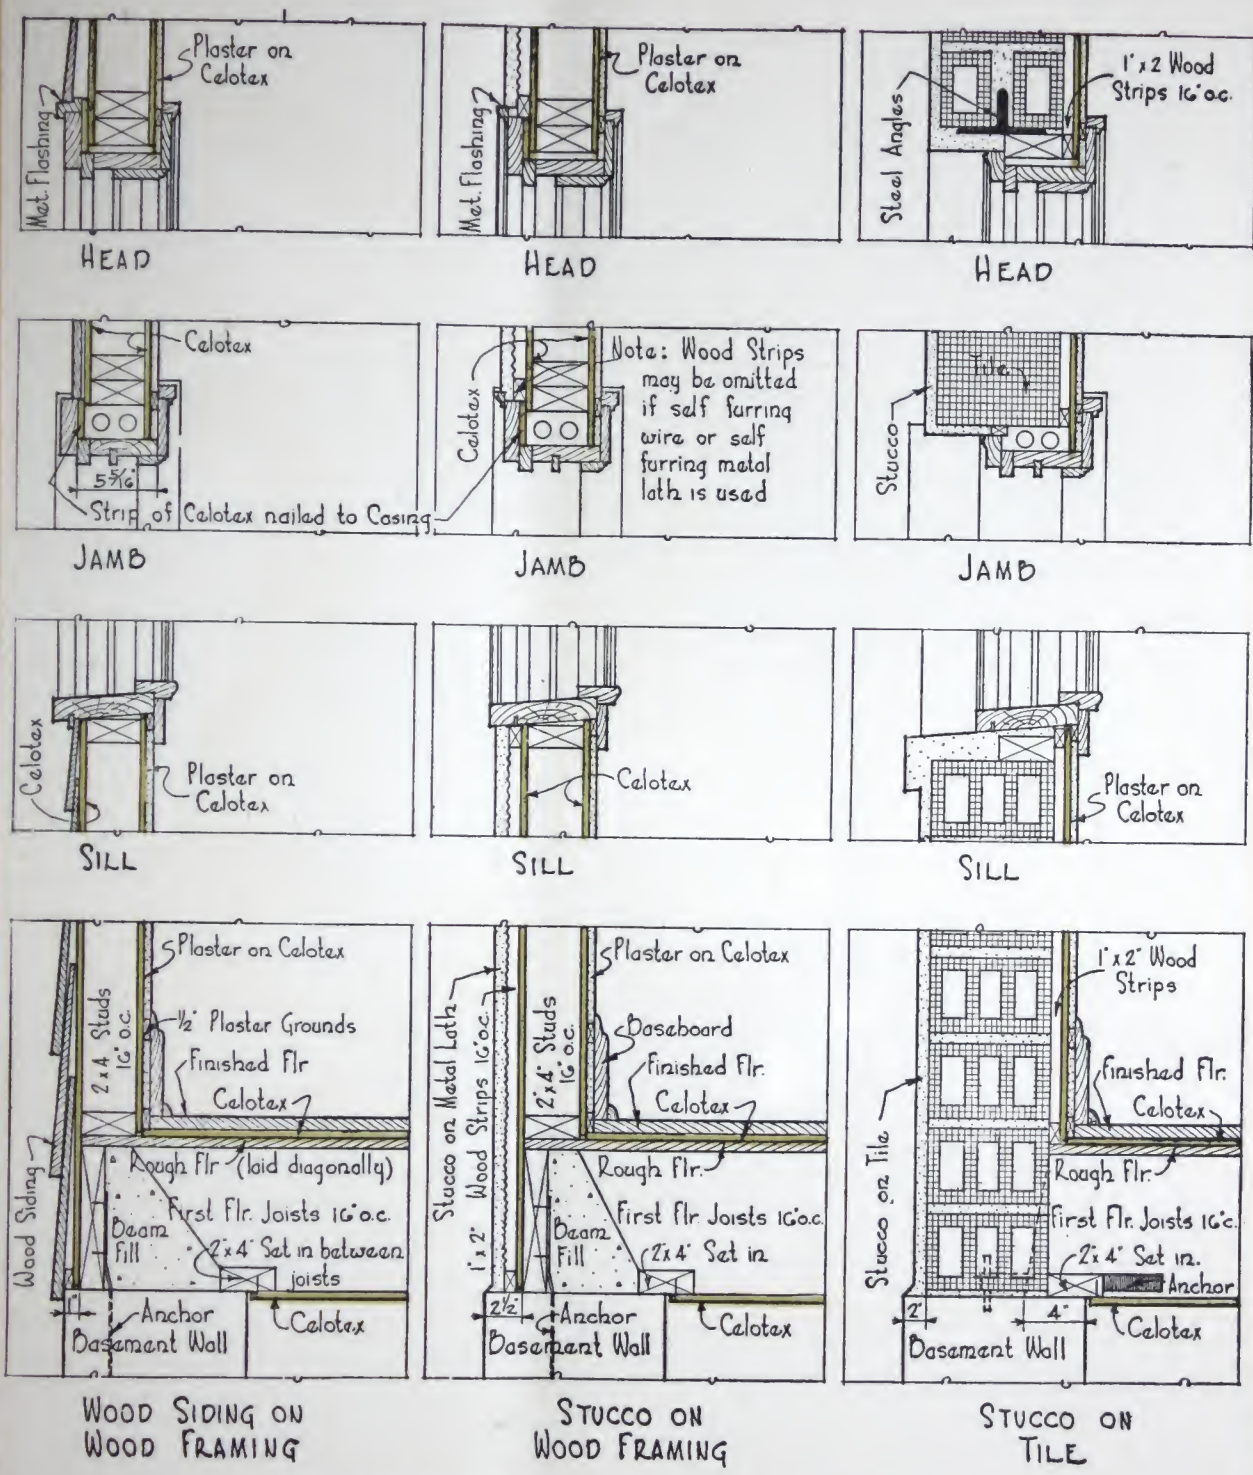 Plaster on
Celotex
Met. Flashing
HEAD
Plaster on
Celotex
Met. Flashing
HEAD
1" x 2 Wood
Strips 16" o.c.
Steel Angles
HEAD
Celotex
5 5/16"
Strip of Celotex nailed to Casing
JAMB
Celotex
Note: Wood Strips
may be omitted
if self furring
wire or self
furring metal
lath is used
JAMB
Tile
Stucco
JAMB
Celotex
Plaster on
Celotex
SILL
Celotex
SILL
Plaster on
Celotex
SILL
Plaster on Celotex
2 x 4 Studs
16" o.c.
1/2" Plaster Grounds
Finished Flr
Celotex
Rough Flr (laid diagonally)
Wood Siding
First Flr. Joists 16" o.c.
Beam
Fill
2" x 4" Set in between
joists
1"
Anchor
Basement Wall
Celotex
WOOD SIDING ON
WOOD FRAMING
Plaster on Celotex
Stucco on Metal Lath
1" x 2" Wood Strips 16" o.c.
2" x 4" Studs
16" o.c.
Baseboard
Finished Flr.
Celotex
Rough Flr.
First Flr. Joists 16" o.c.
Beam
Fill
2" x 4" Set in
2 1/2"
Anchor
Basement Wall
Celotex
STUCCO ON
WOOD FRAMING
1" x 2" Wood
Strips
Finished Flr.
Celotex
Rough Flr.
Stucco on Tile
First Flr. Joists 16" c.
2" x 4" Set in.
Anchor
2"
4"
Celotex
Basement Wall
STUCCO ON
TILE